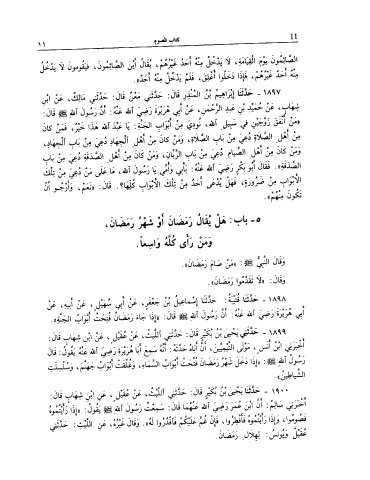 ١٤
كتاب الصوم
١١
الصَّائِمُونَ يَوْمَ الْقِيَامَةِ، لَا يَدْخُلُ مِنْهُ أَحَدٌ غَيْرُهُمْ، يُقَالُ أَيْنَ الصَّائِمُونَ، فَيَقُومُونَ لَا يَدْخُلُ
مِنْهُ أَحَدٌ غَيْرُهُمْ، فَإِذَا دَخَلُوا أُغْلِقَ، فَلَمْ يَدْخُلْ مِنْهُ أَحَدٌ».
١٨٩٧ - حَدَّثَنَا إِبْرَاهِيمُ بْنُ الْمُنْذِرِ قَالَ: حَدَّثَنِي مَعْنٌ قَالَ: حَدَّثَنِي مَالِكٌ، عَنْ ابْنِ
شِهَابٍ، عَنْ حُمَيْدِ بْنِ عَبْدِ الرَّحْمَنِ، عَنْ أَبِي هُرَيْرَةَ رَضِيَ اللهُ عَنْهُ: أَنَّ رَسُولَ اللهِ ﷺ قَالَ:
«مَنْ أَنْفَقَ زَوْجَيْنِ فِي سَبِيلِ اللهِ، نُودِيَ مِنْ أَبْوَابِ الْجَنَّةِ: يَا عَبْدَ اللهِ هَذَا خَيْرٌ، فَمَنْ كَانَ
مِنْ أَهْلِ الصَّلَاةِ دُعِيَ مِنْ بَابِ الصَّلَاةِ، وَمَنْ كَانَ مِنْ أَهْلِ الْجِهَادِ دُعِيَ مِنْ بَابِ الْجِهَادِ،
وَمَنْ كَانَ مِنْ أَهْلِ الصِّيَامِ دُعِيَ مِنْ بَابِ الرَّيَّانِ، وَمَنْ كَانَ مِنْ أَهْلِ الصَّدَقَةِ دُعِيَ مِنْ بَابِ
الصَّدَقَةِ». فَقَالَ أَبُو بَكْرٍ رَضِيَ اللهُ عَنْهُ: بِأَبِي وَأُمِّي يَا رَسُولَ اللهِ، مَا عَلَى مَنْ دُعِيَ مِنْ تِلْكَ
الْأَبْوَابِ مِنْ ضَرُورَةٍ، فَهَلْ يُدْعَى أَحَدٌ مِنْ تِلْكَ الْأَبْوَابِ كُلِّهَا؟. قَالَ: «نَعَمْ، وَأَرْجُو أَنْ
تَكُونَ مِنْهُمْ».
٥ - باب: هَلْ يُقَالُ رَمَضَانُ أَوْ شَهْرُ رَمَضَانَ،
وَمَنْ رَأَى كُلَّهُ وَاسِعاً.
وَقَالَ النَّبِيُّ ﷺ: «مَنْ صَامَ رَمَضَانَ».
وَقَالَ: «لَا تَقَدَّمُوا رَمَضَانَ».
١٨٩٨ - حَدَّثَنَا قُتَيْبَةُ: حَدَّثَنَا إِسْمَاعِيلُ بْنُ جَعْفَرٍ، عَنْ أَبِي سُهَيْلٍ، عَنْ أَبِيهِ، عَنْ
أَبِي هُرَيْرَةَ رَضِيَ اللهُ عَنْهُ: أَنَّ رَسُولَ اللهِ ﷺ قَالَ: «إِذَا جَاءَ رَمَضَانُ فُتِحَتْ أَبْوَابُ الْجَنَّةِ».
١٨٩٩ - حَدَّثَنِي يَحْيَى بْنُ بُكَيْرٍ قَالَ: حَدَّثَنِي اللَّيْثُ، عَنْ عُقَيْلٍ، عَنِ ابْنِ شِهَابٍ قَالَ:
أَخْبَرَنِي ابْنُ أَبِي أَنَسٍ، مَوْلَى التَّيْمِيِّينَ، أَنَّ أَبَاهُ حَدَّثَهُ: أَنَّهُ سَمِعَ أَبَا هُرَيْرَةَ رَضِيَ اللهُ عَنْهُ يَقُولُ: قَالَ
رَسُولُ اللهِ ﷺ: «إِذَا دَخَلَ شَهْرُ رَمَضَانَ فُتِحَتْ أَبْوَابُ السَّمَاءِ، وَغُلِّقَتْ أَبْوَابُ جَهَنَّمَ، وَسُلْسِلَتِ
الشَّيَاطِينُ».
١٩٠٠ - حَدَّثَنَا يَحْيَى بْنُ بُكَيْرٍ قَالَ: حَدَّثَنِي اللَّيْثُ، عَنْ عُقَيْلٍ، عَنِ ابْنِ شِهَابٍ قَالَ:
أَخْبَرَنِي سَالِمٌ: أَنَّ ابْنَ عُمَرَ رَضِيَ اللهُ عَنْهُمَا قَالَ: سَمِعْتُ رَسُولَ اللهِ ﷺ يَقُولُ: «إِذَا رَأَيْتُمُوهُ
فَصُومُوا، وَإِذَا رَأَيْتُمُوهُ فَأَفْطِرُوا، فَإِنْ غُمَّ عَلَيْكُمْ فَاقْدُرُوا لَهُ». وَقَالَ غَيْرُهُ، عَنِ اللَّيْثِ: حَدَّثَنِي
عُقَيْلٌ وَيُونُسُ: لِهِلَالِ رَمَضَانَ.